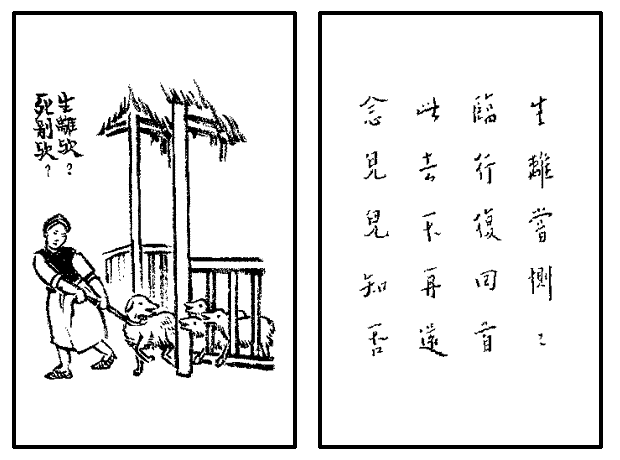 生離欤？
死別欤？
生離嘗惻〻
臨行復回首
此去不再還
念兒兒知否